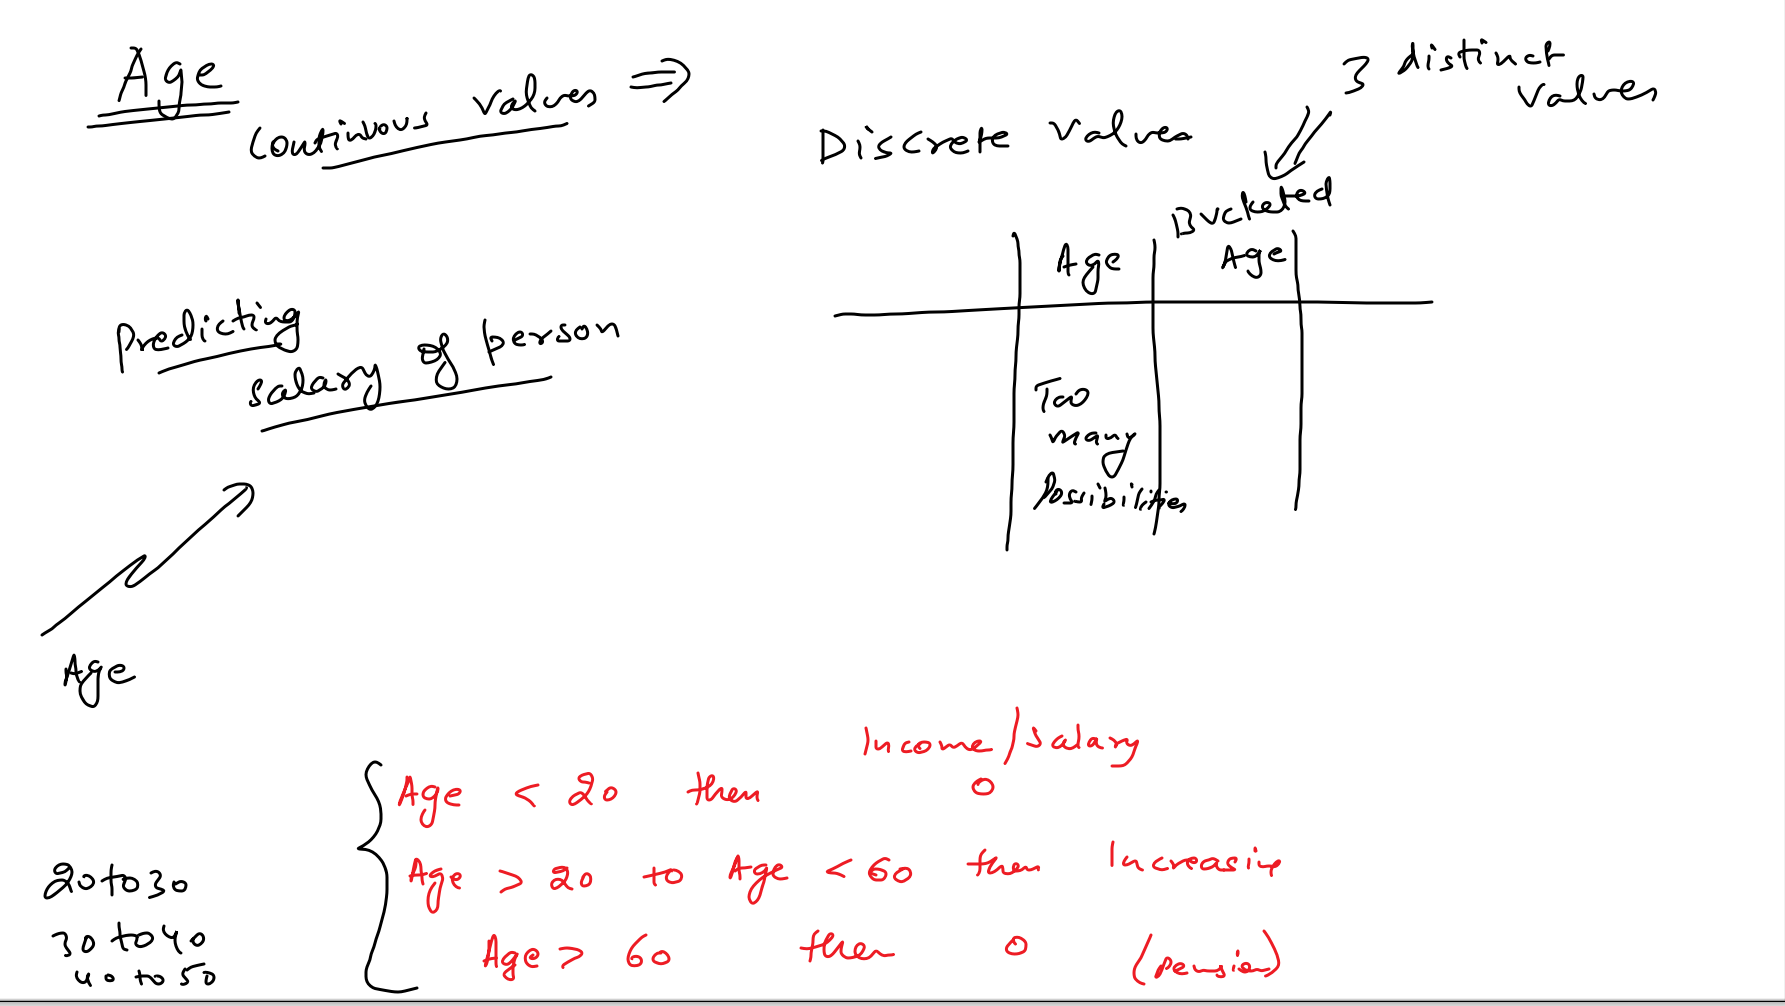 Age
Continuous values ⇒
Discrete values
3 distinct
values
Bucketed
Age
Age
Too
many
Possibilities
Predicting
salary of person
Age
Income/Salary
Age < 20 then 0
Age > 20 to Age < 60 then Increasing
Age > 60 then 0 (pension)
20 to 30
30 to 40
40 to 50